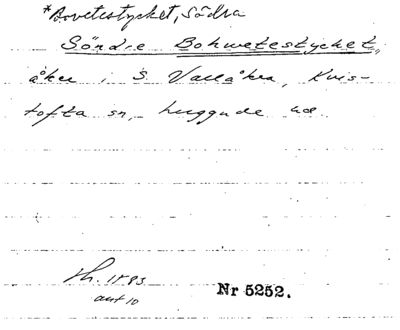 *Bovetestycket, Södra
Söndre Bohwetestycket,
åker i S. Vallåkra, Kvis-
tofta sn, Luggude hd
Lh. 1783
akt 10
Nr 5252.